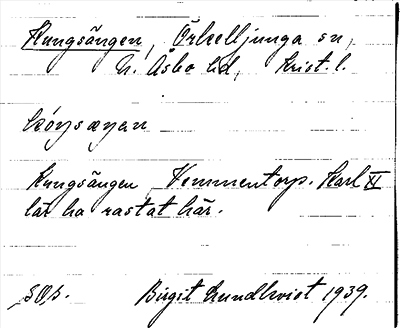 Kungsängen, Örkelljunga sn,
N. Åsbo hd, Krist. l.
kóŋsæŋan
Kungsängen, Vemmentorp. Karl XI
lär ha rastat här.
SOb. Birgit Lundkvist 1939.